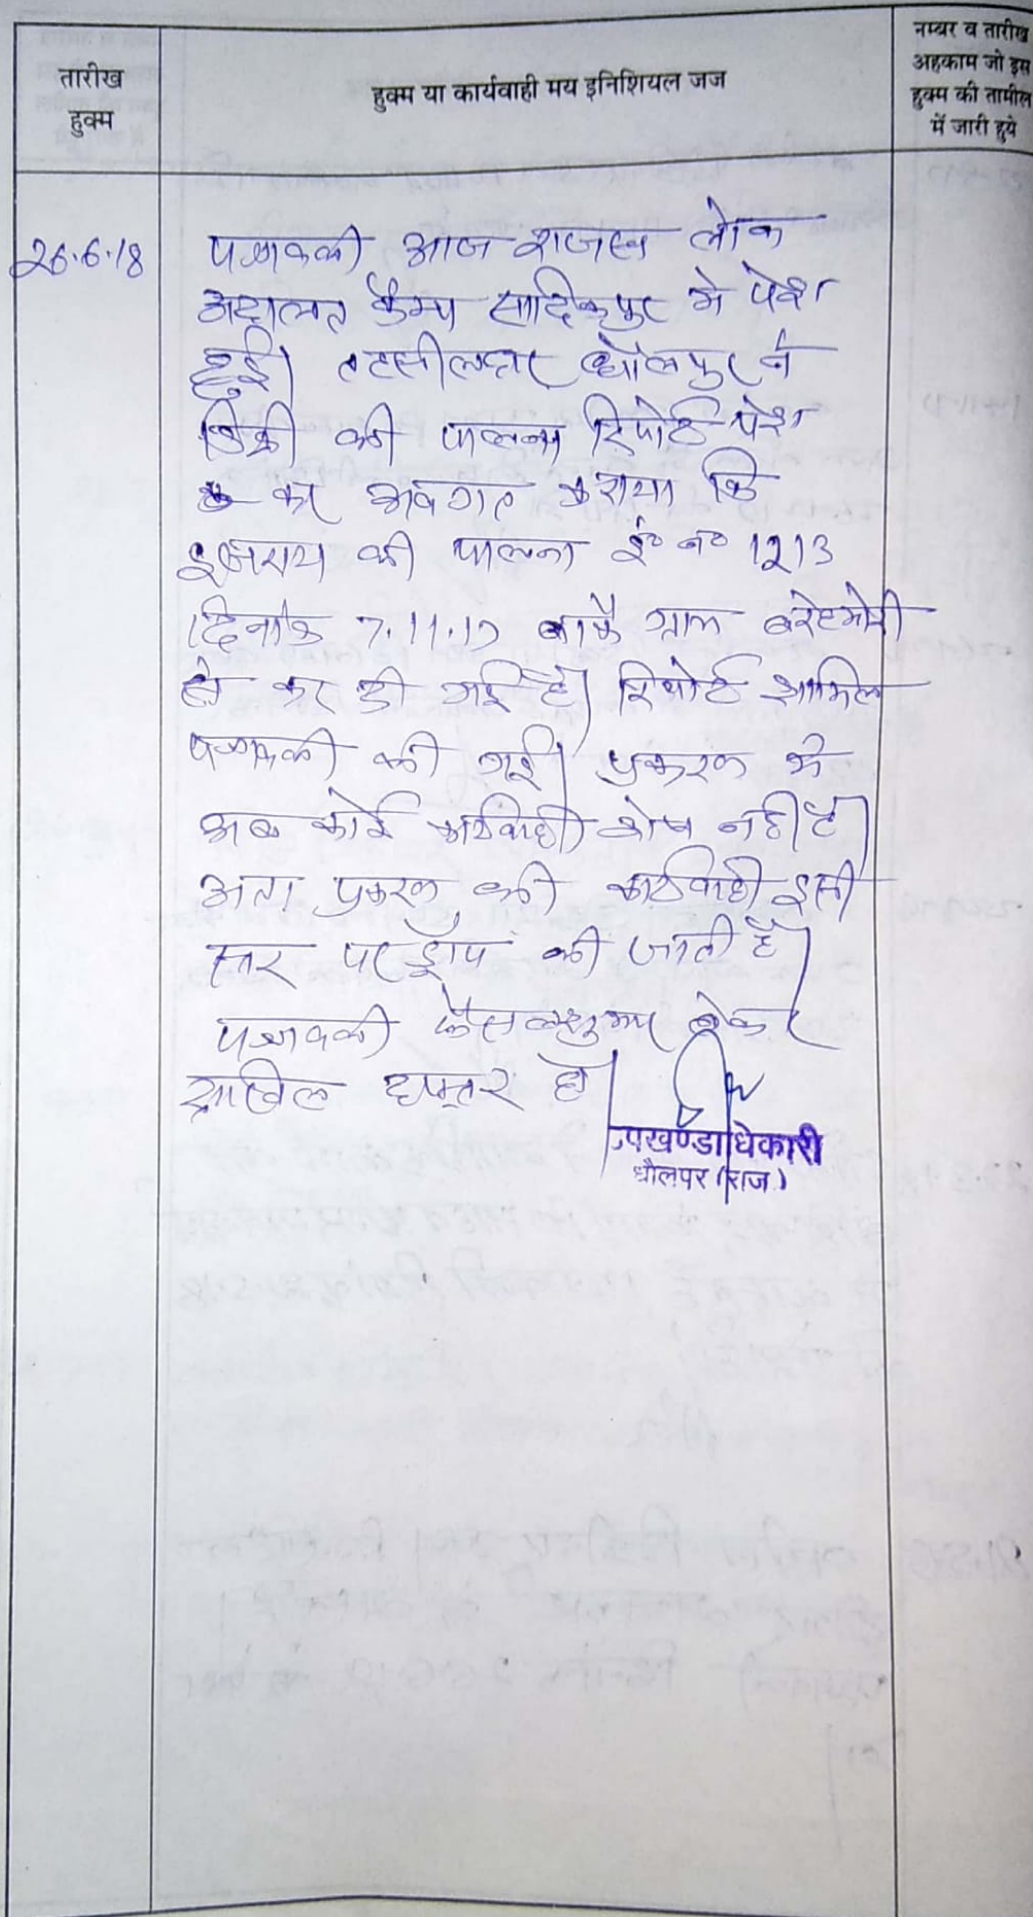 तारीख
हुक्म
हुक्म या कार्यवाही मय इनिशियल जज
नम्बर व तारीख
अहकाम जो इस
हुक्म की तामील
में जारी हुये
26.6.18
पत्रावली आज राजस्व लोक
अदालत कैम्प सादिकपुर मे पेश
हुई। तहसीलदार धौलपुर ने
डिक्री की पालना रिपोर्ट पेश
कर अवगत कराया कि
इजराय की पालना ई० न० 1213
दिनांक 7.11.17 वाकै ग्राम
हो कर दी गई है। रिपोर्ट शामिल
पत्रावली की गई। प्रकरण मे
अब कोई कार्यवाही शेष नही है।
अतः प्रकरण की कार्यवाही इसी
स्तर पर ड्रॉप की जाती है।
पत्रावली फैसलशुमार होकर
दाखिल दफ्तर हो।
उपखण्डाधिकारी
धौलपुर (राज.)